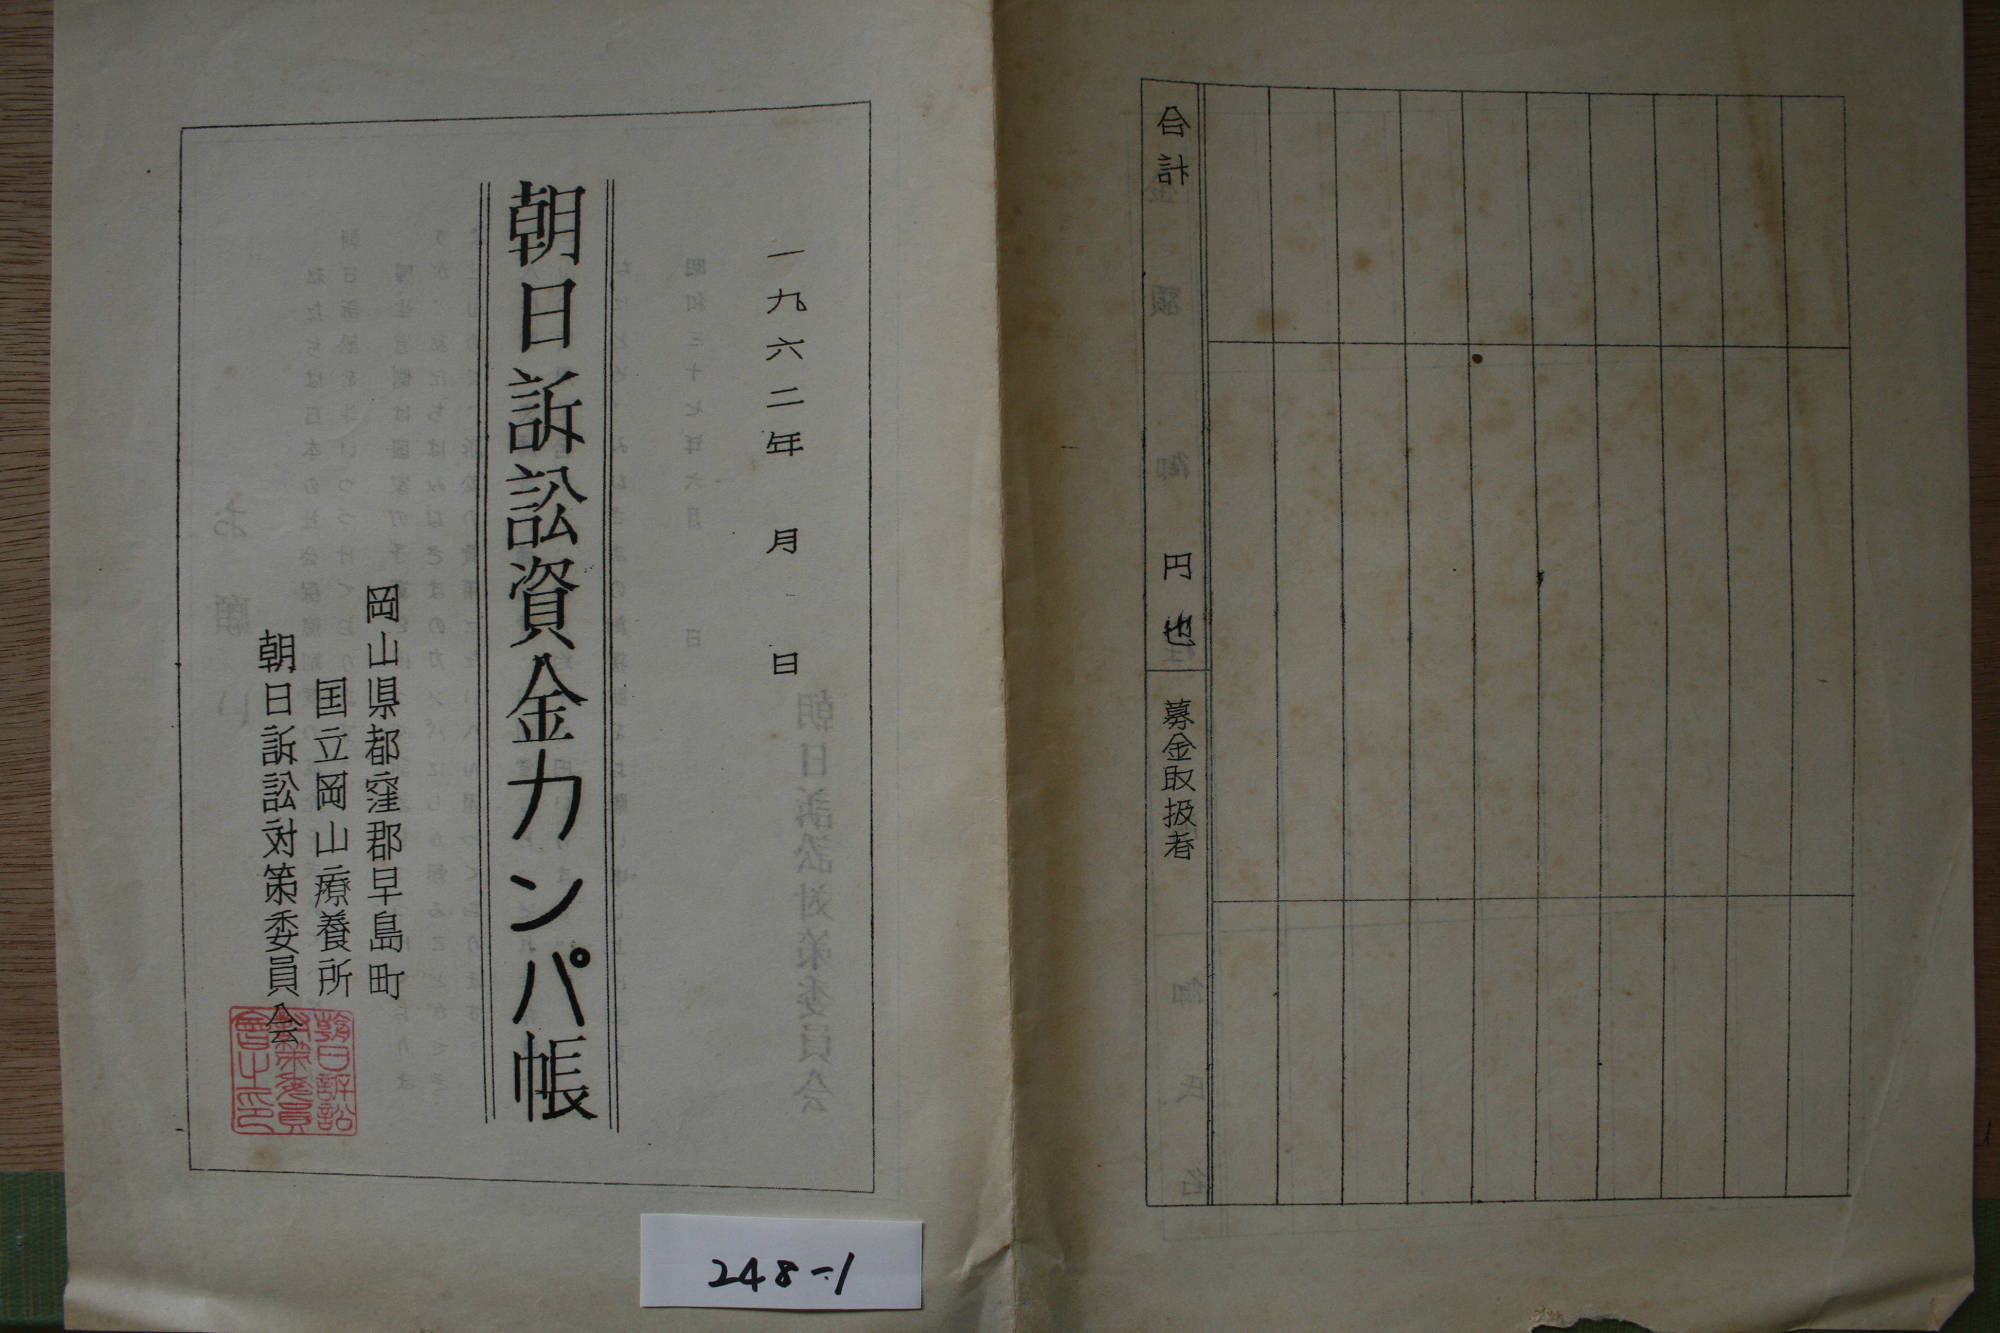 一九六二年 月 日
朝日訴訟資金カンパ帳
岡山県都窪郡早島町
国立岡山療養所
朝日訴訟対策委員会
朝日訴訟
対策委員
會之印
合計 円也
募金取扱者
248-1